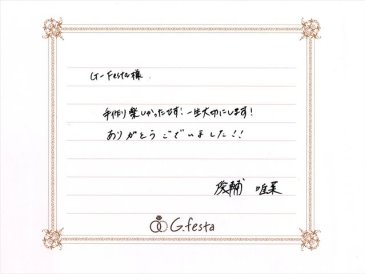 G-Festa様
手作り楽しかったです！一生大切にします！
ありがとうございました！！
俊輔 唯菜
G.festa